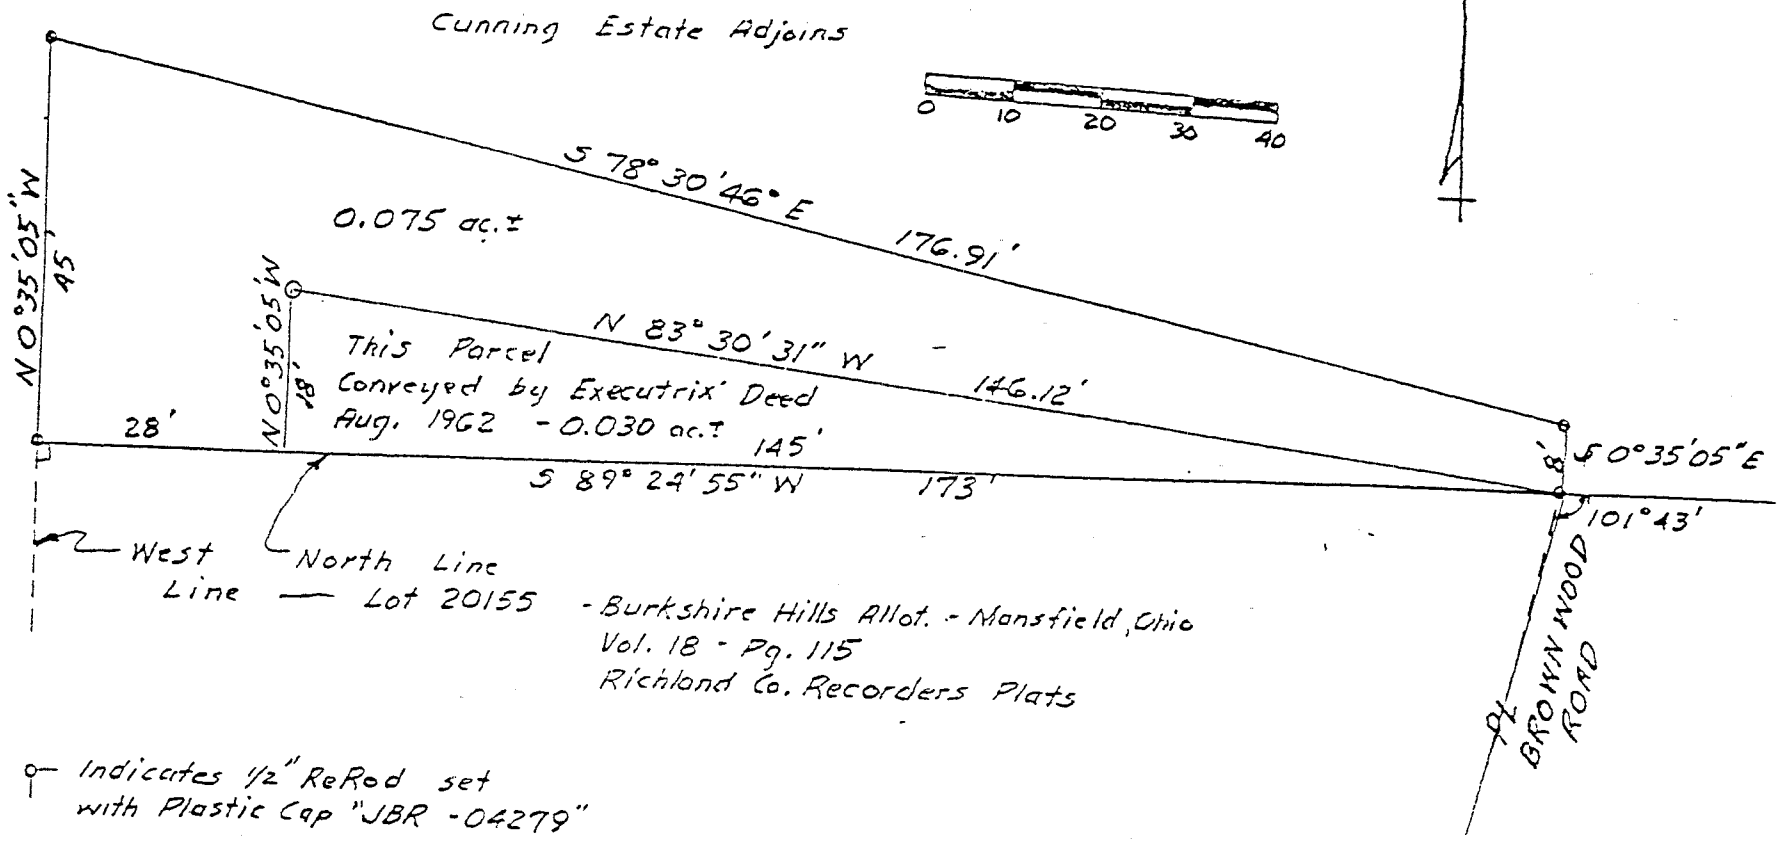 Cunning Estate Adjoins
0 10 20 30 40
S 78° 30' 46° E
176.91'
0.075 ac.±
N 0°35'05" W
45'
N 0°35'05" W
18'
N 83° 30' 31" W
146.12'
This Parcel
Conveyed by Executrix' Deed
Aug. 1962 - 0.030 ac.±
28'
145'
S 89° 24' 55" W
173'
8'
S 0°35'05" E
101°43'
West
Line
North Line
Lot 20155 - Burkshire Hills Allot. - Mansfield, Ohio
Vol. 18 - Pg. 115
Richland Co. Recorders Plats
BROWNWOOD
ROAD
Indicates 1/2" ReRod set
with Plastic Cap "JBR - 04279"